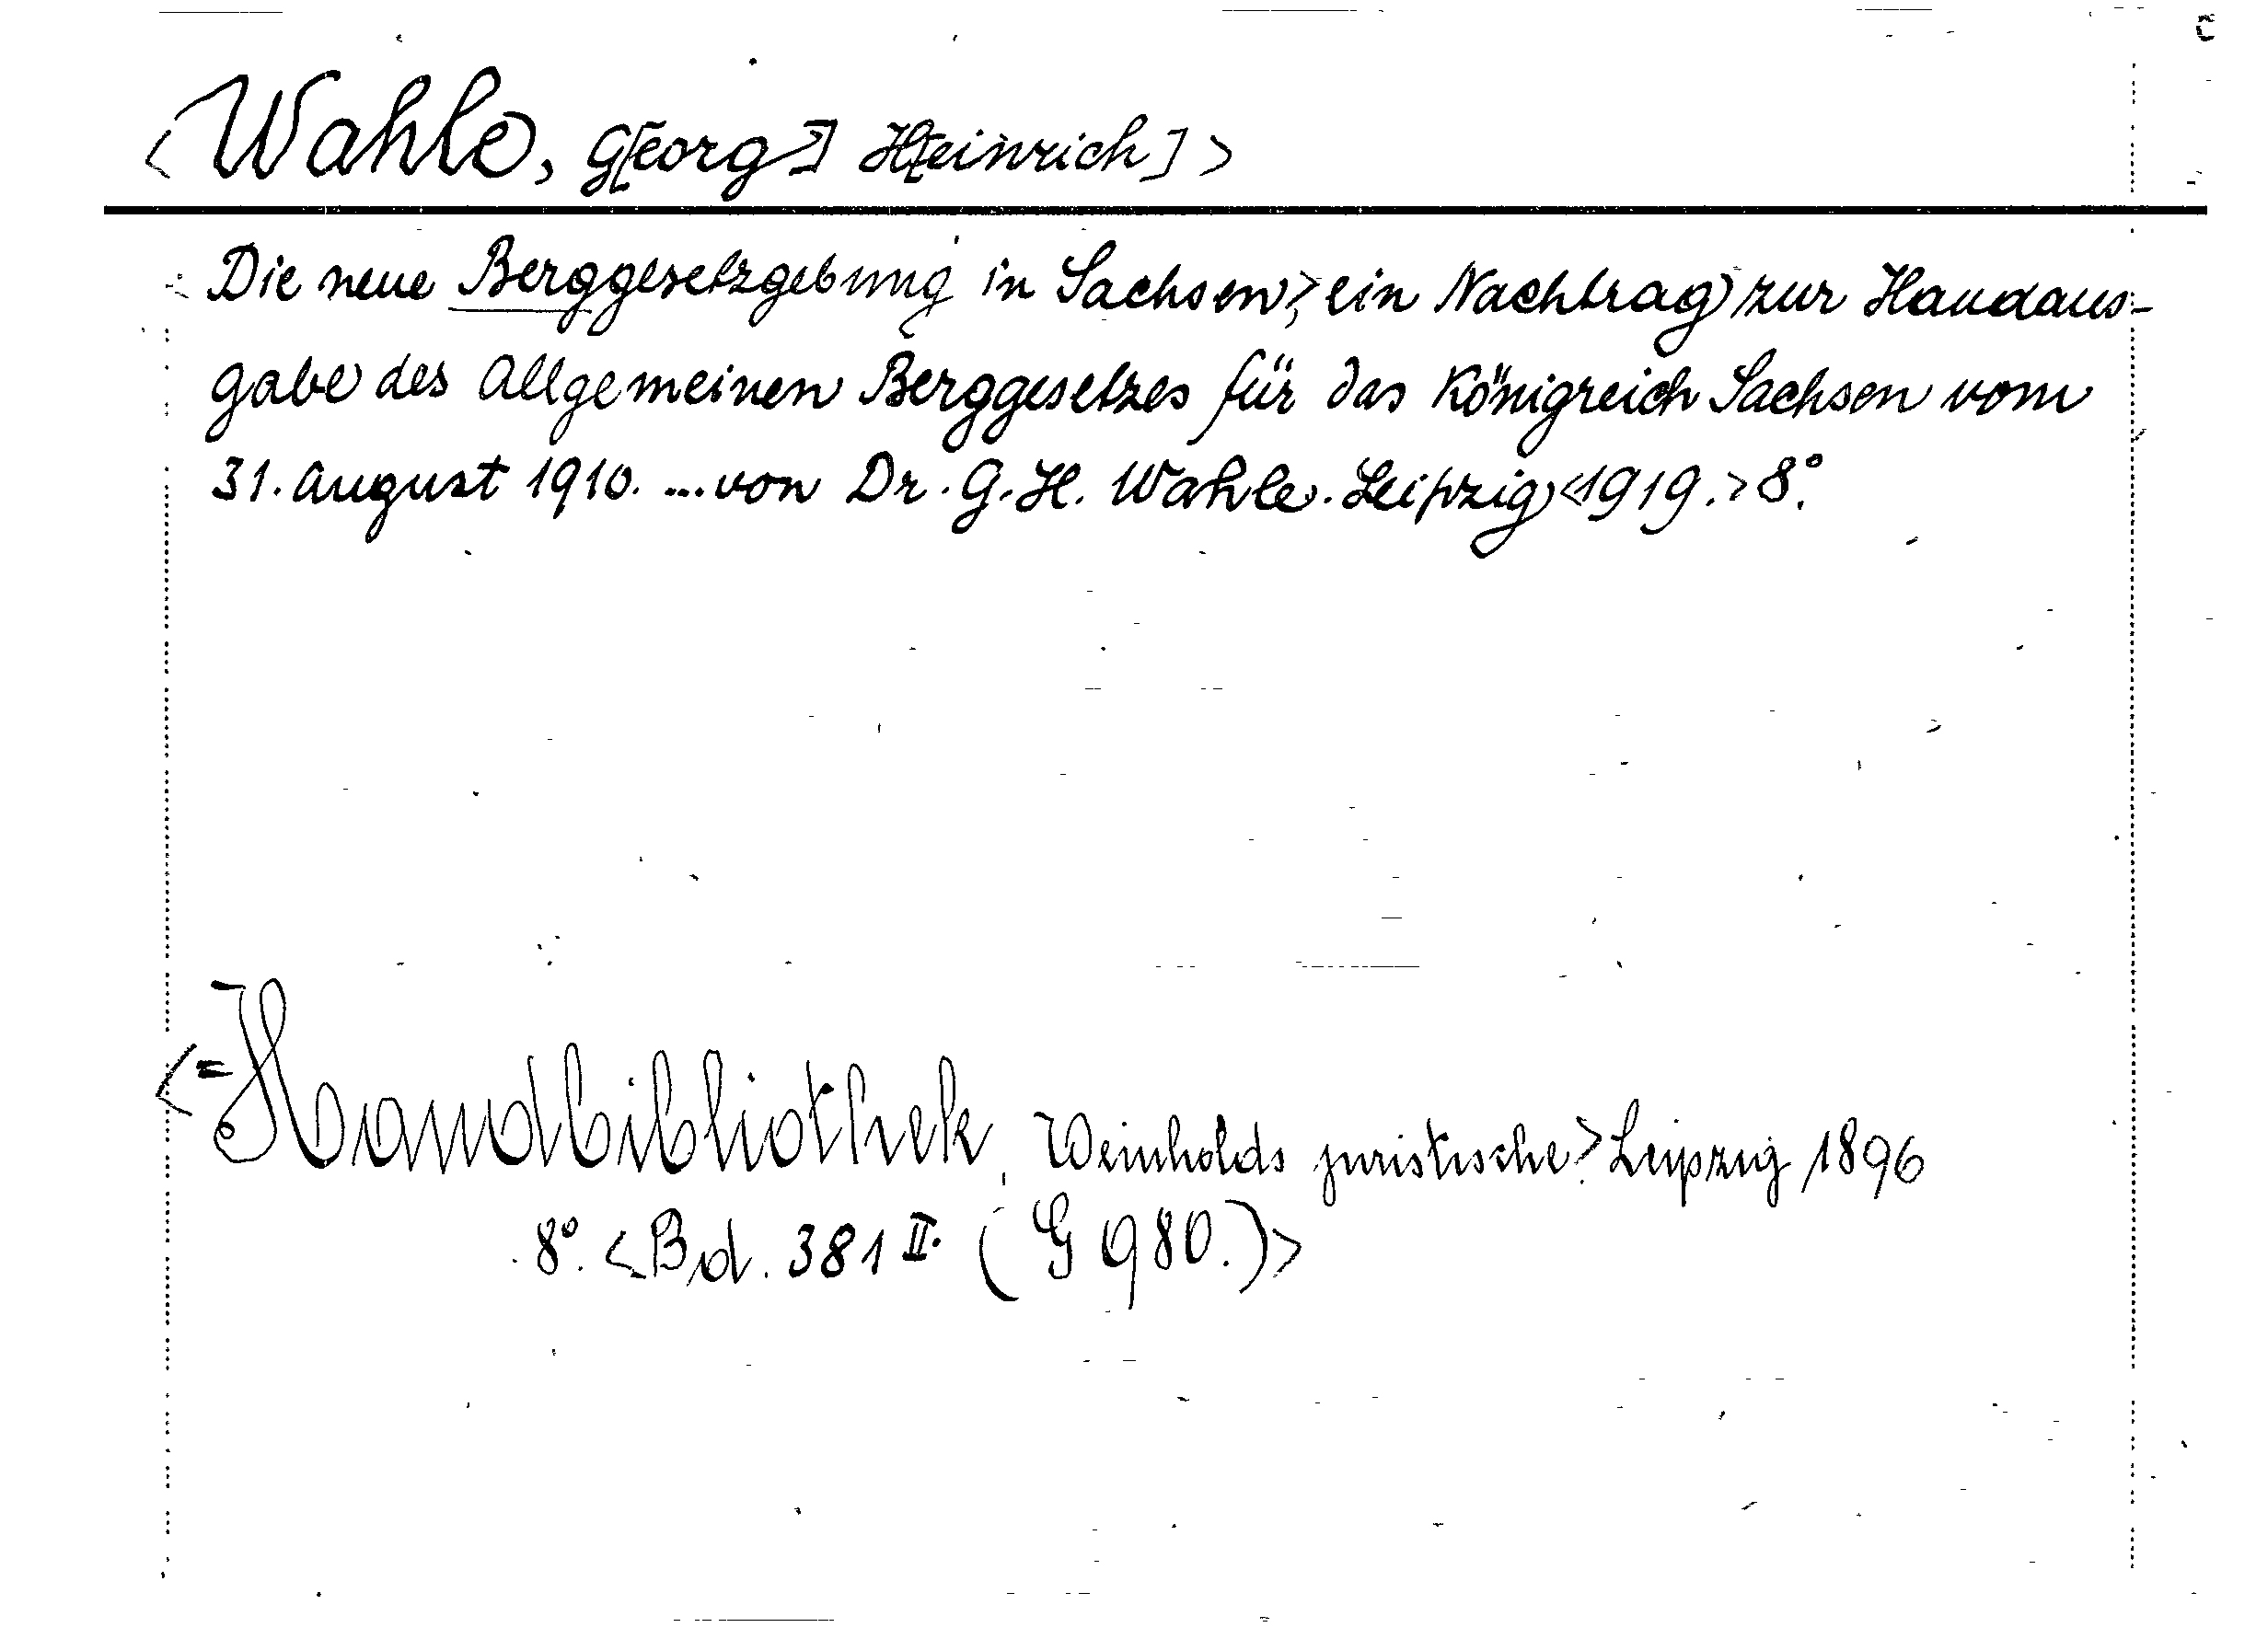 <Wahle, G[eorg] H[einrich]>
Die neue Berggesetzgebung in Sachsen>; ein Nachtrag zur Handaus-
gabe des Allgemeinen Berggesetzes für das Königreich Sachsen vom
31. August 1910. ... von Dr. G. H. Wahle. Leipzig <1919.> 8°.
<= Handbibliothek, Weinholds juristische> Leipzig 1896
8°. <Bd. 381 II. (G 980.)>